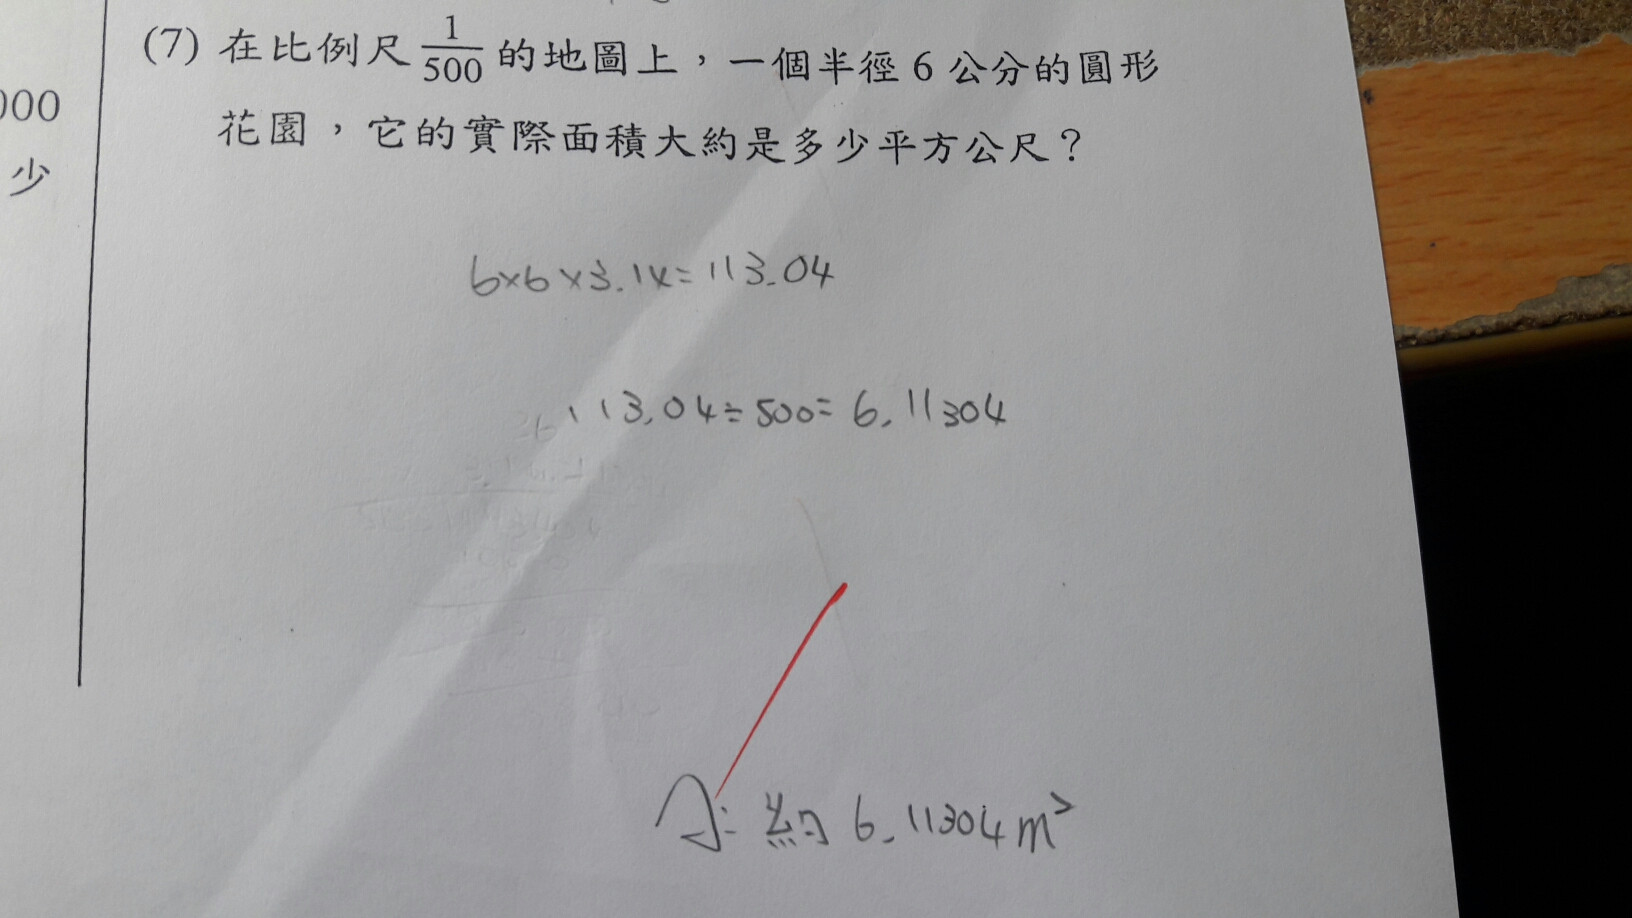 000
少
(7) 在比例尺 1/500 的地圖上，一個半徑 6 公分的圓形
花園，它的實際面積大約是多少平方公尺？
6×6×3.14=113.04
113.04÷500=6.11304
A:約 6.11304 m²